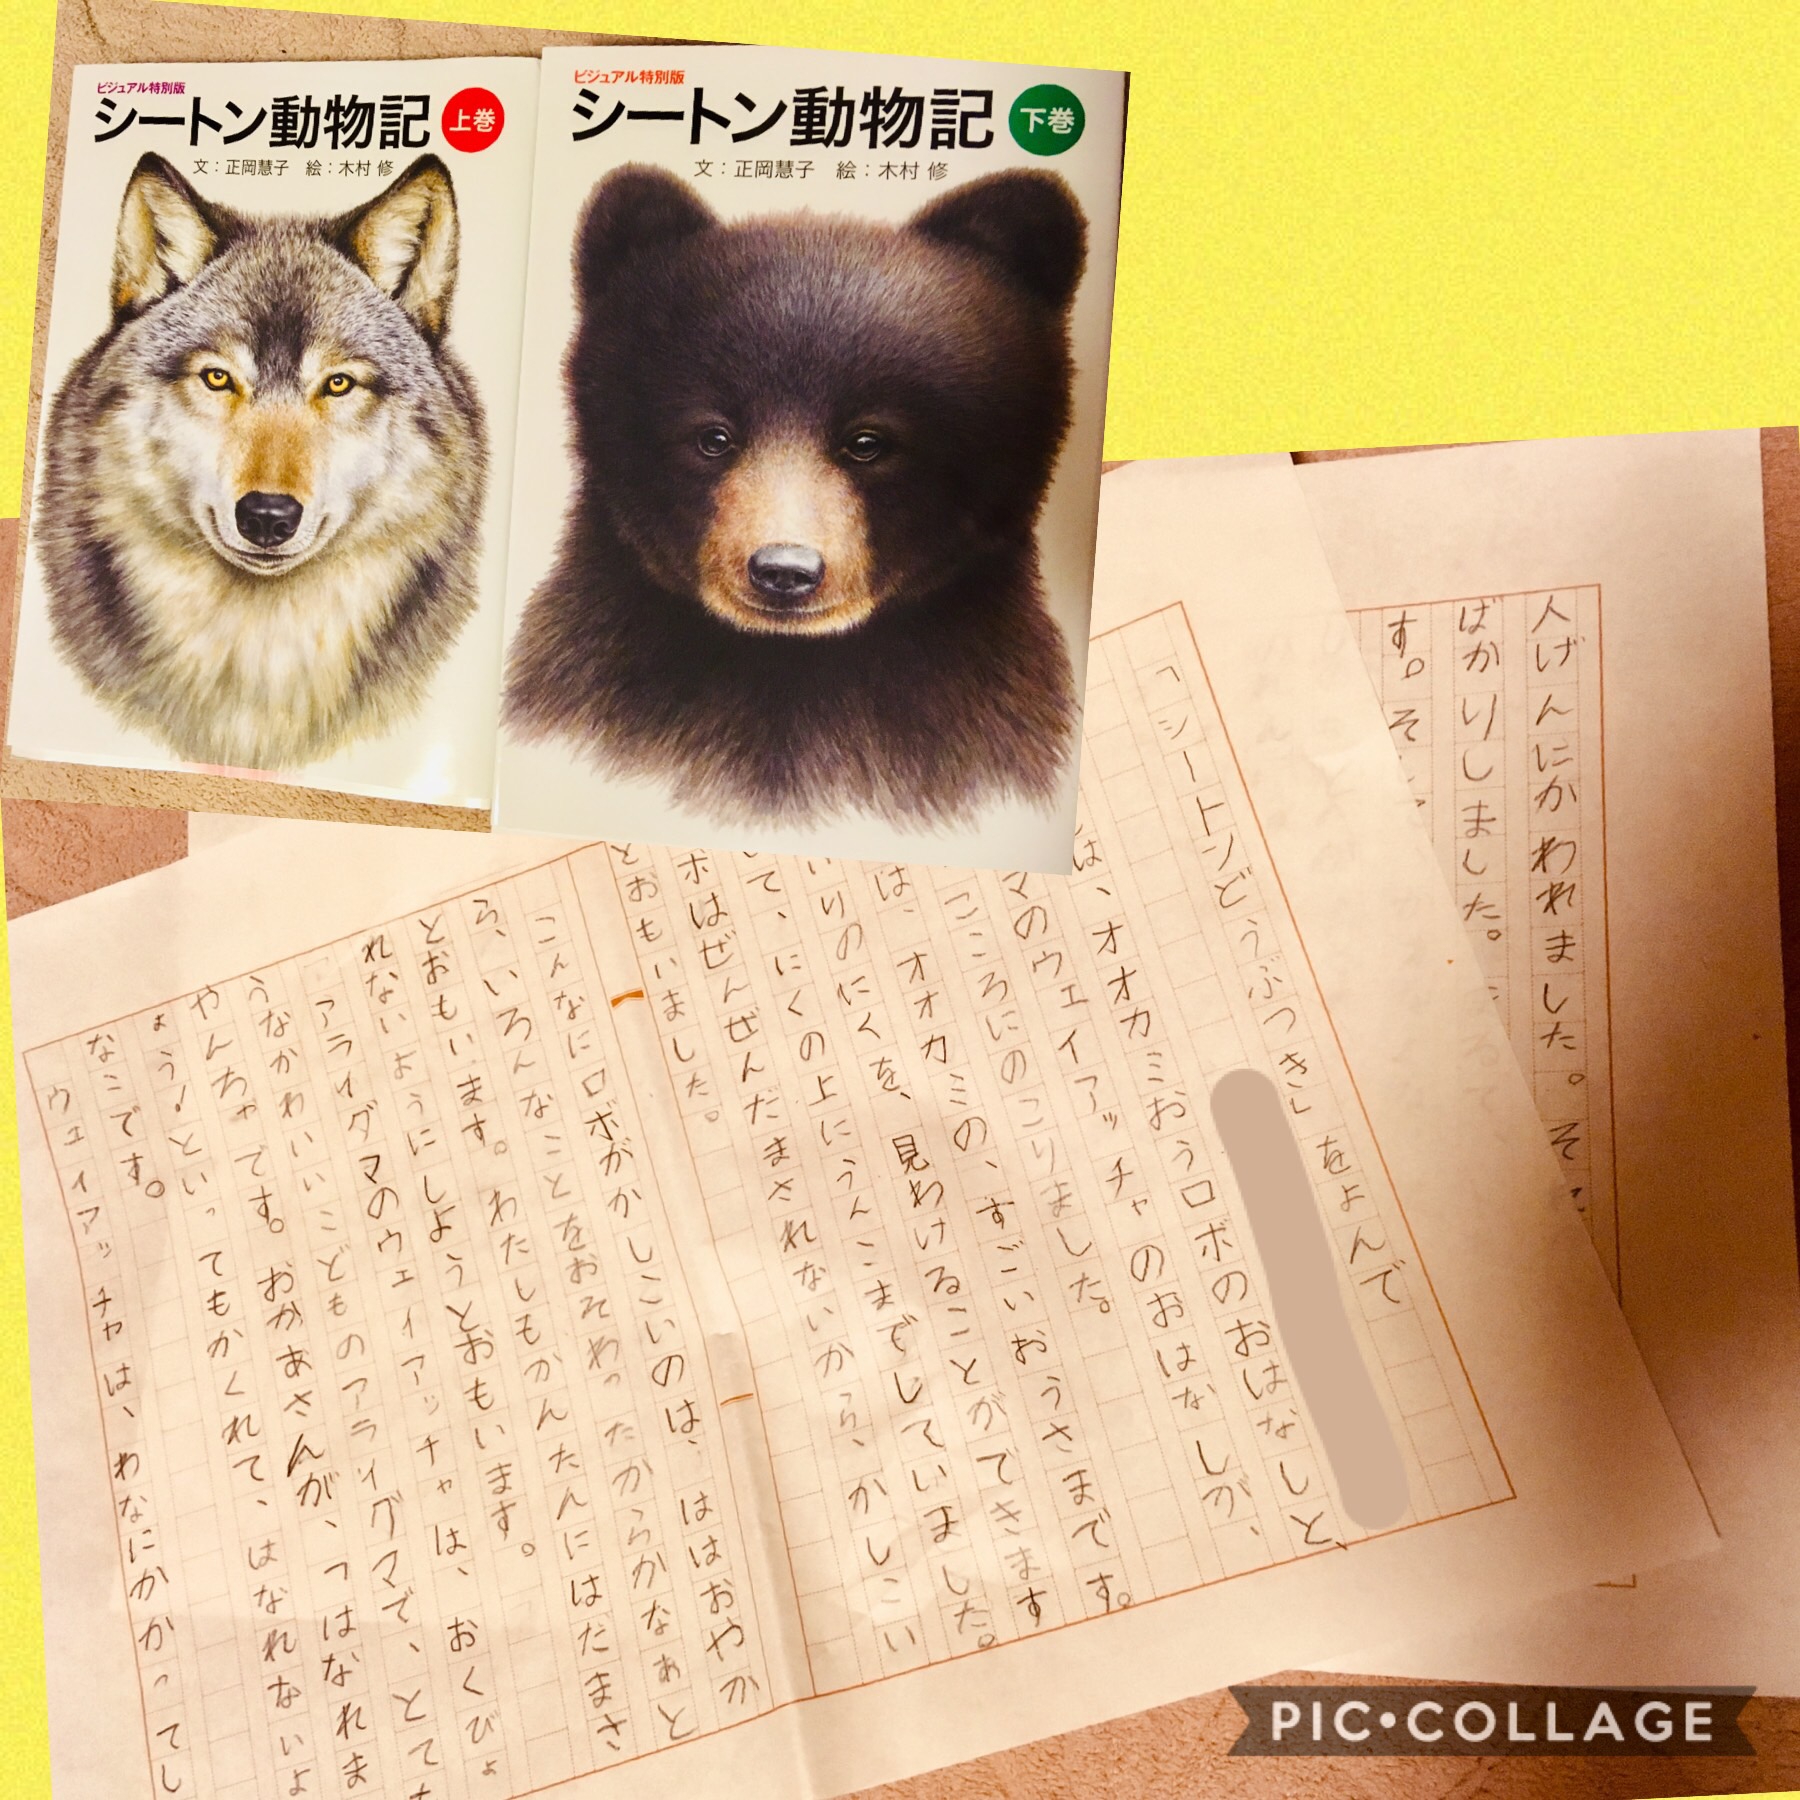 ビジュアル特別版
シートン動物記 上巻
文：正岡慧子 絵：木村 修
ビジュアル特別版
シートン動物記 下巻
文：正岡慧子 絵：木村 修
人げんにかわれました。そ
ばかりしました。
す。そ
「シートンどうぶつき」をよんで
は、オオカミおうロボのおはなしと、
マのウェイアッチャのおはなしが、
こころにのこりました。
は、オオカミの、すごいおうさまです。
いりのにくを、見わけることができます
て、にくの上にうんこまでしていました。
ボはぜんぜんだまされないから、かしこい
とおもいました。
こんなにロボがかしこいのは、ははおやか
ら、いろんなことをおそわったからかなぁと
とおもいます。わたしもかんたんにはだまさ
れないようにしようとおもいます。
アライグマのウェイアッチャは、おくびょ
うなかわいいこどものアライグマで、とても
やんちゃです。おかあさんが、つはなれま
ょう！といってもかくれて、はなれないよ
なこです。
ウェイアッチャは、わなにかかってし
PIC•COLLAGE